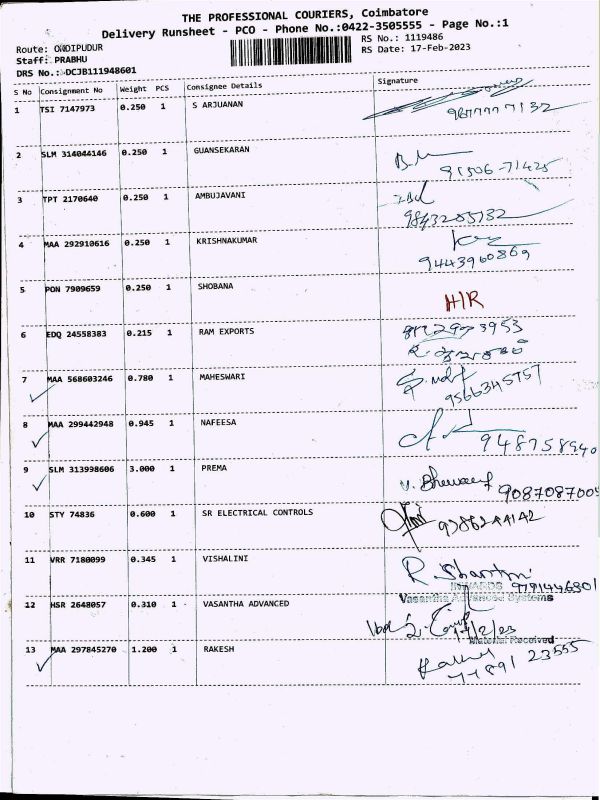 THE PROFESSIONAL COURIERS, Coimbatore
Delivery Runsheet - PCO - Phone No.:0422-3505555 - Page No.:1
Route: ONDIPUDUR
RS No.: 1119486
Staff: PRABHU
RS Date: 17-Feb-2023
DRS No.: DCJB111948601
S No Consignment No Weight PCS Consignee Details Signature
1 TSI 7147973 0.250 1 S ARJUANAN
2 SLM 314044146 0.250 1 GUANSEKARAN
91506-71425
3 TPT 2170640 0.250 1 AMBUJAVANI
9843205732
4 MAA 292910616 0.250 1 KRISHNAKUMAR
9443960869
5 PON 7909659 0.250 1 SHOBANA
H/R
6 EDQ 24558383 0.215 1 RAM EXPORTS
7 MAA 568603246 0.780 1 MAHESWARI
9566345757
8 MAA 299442948 0.945 1 NAFEESA
948758940
9 SLM 313998606 3.000 1 PREMA
9087087005
10 STY 74836 0.600 1 SR ELECTRICAL CONTROLS
9386244142
11 VRR 7180099 0.345 1 VISHALINI
9791446301
INWARDS
12 HSR 2648057 0.310 1 VASANTHA ADVANCED
Vasantha Advanced Systems
17/2/23
Material Received
13 MAA 297845270 1.200 1 RAKESH
77891 23555